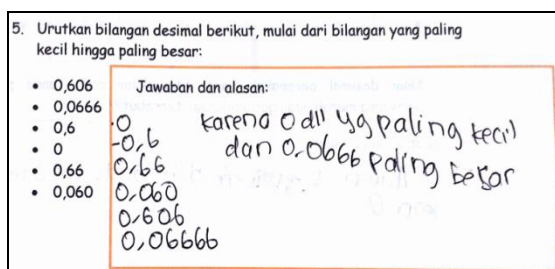 5. Urutkan bilangan desimal berikut, mulai dari bilangan yang paling
kecil hingga paling besar:
• 0,606
• 0,0666
• 0,6
• 0
• 0,66
• 0,060
Jawaban dan alasan:
-0
-0,6
0,66
0,060
0,606
0,06666
karena 0 dll yg paling kecil
dan 0,0666 paling besar